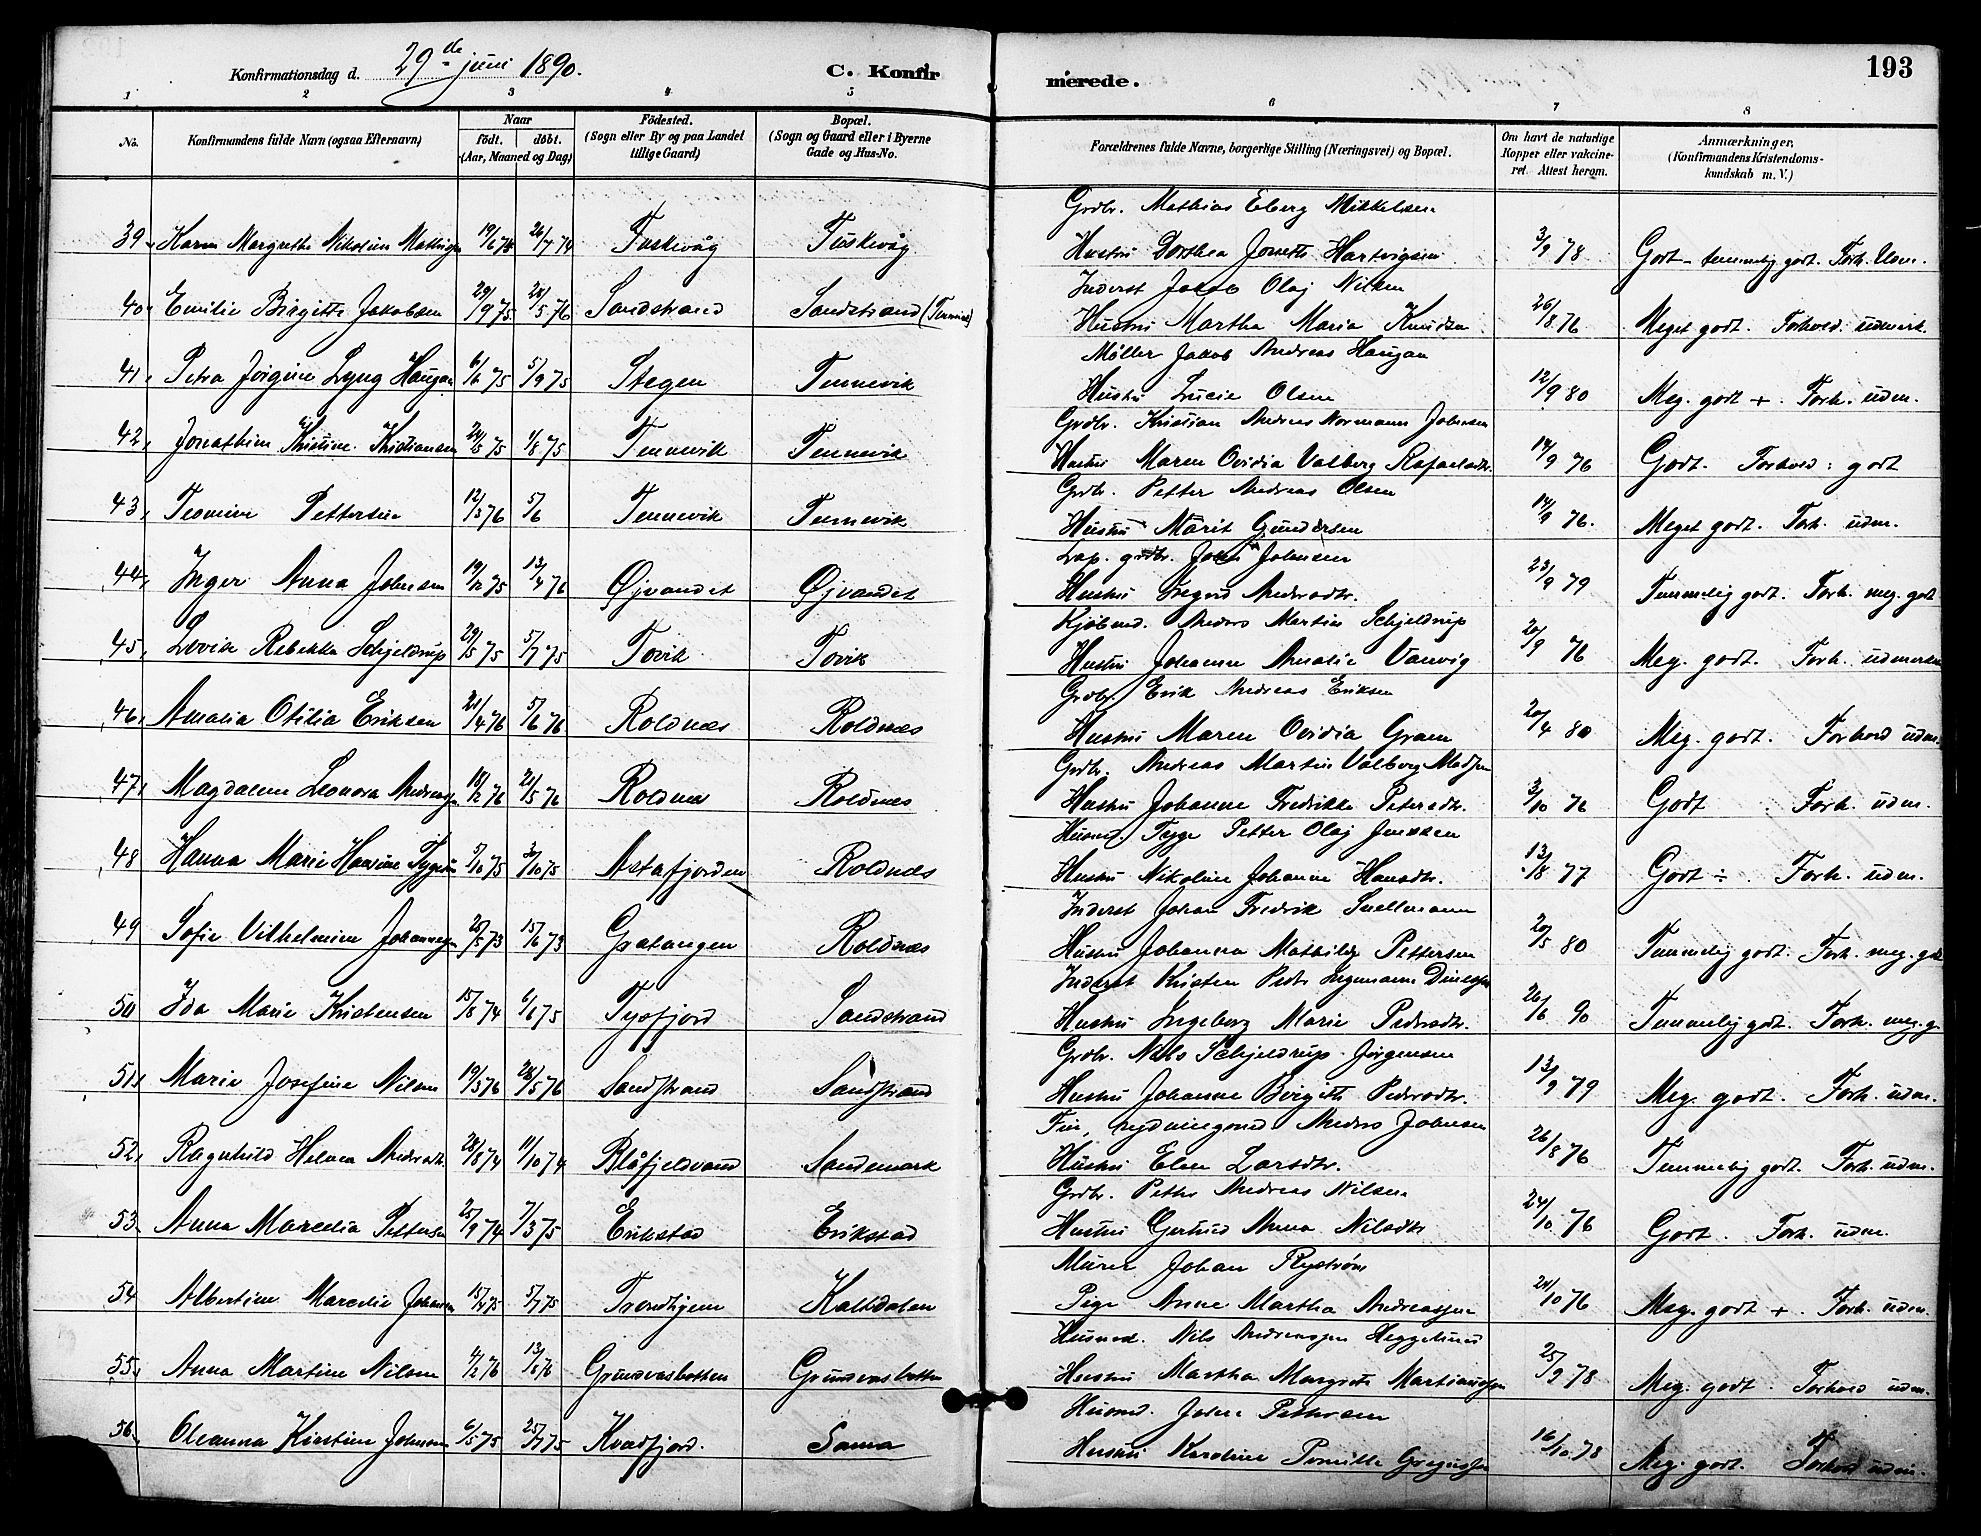 Konfirmationsdag d. 29de juni 1890. C. Konfirmerede. 193
1 2 3 4 5 6 7 8
No. Konfirmandens fulde Navn (ogsaa Efternavn) Naar født. døbt. (Aar, Maaned og Dag) Fødested. (Sogn eller By og paa Landet tillige Gaard) Bopæl. (Sogn og Gaard eller i Byerne Gade og Hus-No. Forældrenes fulde Navne, borgerlige Stilling (Næringsvei) og Bopæl. Om havt de naturlige Kopper eller vakcineret. Attest herom. Anmærkninger. (Konfirmandens Kristendomskundskab m. V.)
Grdbr. Mathias Eberg Mikkelsen
39 Karen Margrethe Nikoline Mathisen 19/6 74 26/7 74 Fuskevåg Fuskevåg Hustru Dorthea Jonetta Hartvigsen 3/9 78 Godt - temmelig godt. Forh. Udm.
Inderst Jakob Olaj Nilsen
40 Emilie Birgitte Jakobsen 29/9 75 28/5 76 Sandstrand Sandstrand Hustru Martha Maria Knudsen 26/8 76 Meget godt. Forhold: udmerk.
Møller Jakob Andreas Haugan
41, Petra Jørgine Lyng Haugan 6/6 75 5/9 75 Stegen Tennevik Hustru Lucie Olsen 12/9 80 Meg. godt +. Forh. udm.
Grdbr. Kristian Andreas Normann Johnsen
42, Kristine Kristiansen 24/5 75 1/8 75 Tennevik Tennevik Hustru Maren Ovidia Valberg Rafaelsdtr. 14/9 76 Godt. Forhold: godt
Grdbr. Petter Andreas Olsen
43, Pettersen 12/3 76 5/6 Tennevik Tennevik Hustru Marit Gundersen 14/9 76. Meget godt. Forh. udm.
Lap. grdbr. John Johnsen
44, Inger Anna Johnsen 19/12 75 13/4 76 Øjvandet Øjvandet Hustru Andersdtr. 23/9 79 Temmelig godt. Forh. meg. godt
Kjøbmd. Anders Martin Schjeldrup
45, Lovise Rebekka Schjeldrup 29/5 75 5/7 75 Tovik Tovik Hustru Johanna Amalie Vanvig 20/9 76 Meg. godt. Forh. udmerket
Grdbr. Erik Andreas Eriksen
46, Amalia Otilia Eriksen 21/4 76 5/6 76 Roldnæs Roldnæs Hustru Maren Ovidia Gram 20/4 80 Meg. godt. Forhold udm.
Grdbr. Andreas Martin Valberg Madsen
47, Magdalene Leonora Andreasen 18/2 76 21/5 76 Roldnæs Roldnæs Hustru Johanne Fredrikke Petersdtr. 3/10 76 Godt Forh. udm.
Husmd. Tyge Petter Olaj Jenssen
48 Hanna Marie Hansine Tygesen 5/10 75 /10 75 Astafjorden Roldnæs Hustru Nikoline Johanne Hansdtr. 13/8 77 Godt ÷. Forh. udm.
Inderst Johan Fredrik Snellmann
49 Sofie Vilhelmine Johannesen 28/5 73 15/6 73 Gratangen Roldnæs Hustru Johanna Mathilde Pettersen 20/5 80 Temmelig godt. Forh. meg. godt
Inderst Kristen Peder Ingemann
50 Ida Marie Kristensen 15/8 74 6/6 75 Tysfjord Sandstrand Hustru Ingeborg Marie Pedersdtr. 26/6 90 Temmelig godt. Forh. meg. g.
Grdbr. Nils Schjeldrup Jørgensen
51, Marie Josefine Nilsen 19/3 76 28/5 76 Sandstrand Sandstrand Hustru Johanne Birgitte Pedersdtr. 13/9 79 Meg. godt. Forh. udm.
Fin, rydningsmd Anders Johnsen
52, Ragnhild Helena Andersdtr. 28/8 74 11/10 74 Blåfjeldvand Sandemark Hustru Elen Larsdtr. 26/8 76 Temmelig godt. Forh. udm.
Grdbr. Petter Andreas Nilsen
53 Anna Marcelia Pettersen 25/9 74 7/3 75 Erikstad Erikstad Hustru Gertrud Anna Nilsdtr 24/10 76 Godt. Forh. udm.
Murer Johan Rystrøm
54 Albertine Marcelie Johansen 15/4 75 5/7 75 Trondhjem Kaltdalen Pige Anne Martha Andreassen 21/10 76 Meg. godt +. Forh. udm.
Husmd. Nils Andreassen Heggelund
55, Anna Martine Nilsen 4/2 76 13/8 76 Grundvasbotten Grundvasbotten Hustru Martha Margrete Martinussen 25/9 78 Meg. godt. Forhold udm.
Husmd. Johan Pettersen
56. Oleanna Kirstine Johansen 6/5 75 25/7 75 Kvædfjord. Sama Hustru Karoline Pernille Gregussen 16/10 78 Meg. godt. Forhold udm.